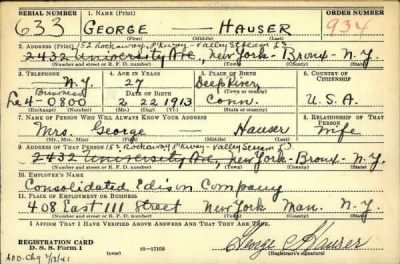 SERIAL NUMBER 1. NAME (Print) ORDER NUMBER
633 GEORGE — HAUSER 934
(First) (Middle) (Last)
2. ADDRESS (Print) 152 Rockaway Pkway - Valley Stream
2432 University Ave, New York - Bronx - N.Y.
(Number and street or R. F. D. number) (Town) (County) (State)
3. TELEPHONE 4. AGE IN YEARS 5. PLACE OF BIRTH 6. COUNTRY OF CITIZENSHIP
N.Y. 27 Deep River
DATE OF BIRTH
Le 4-0800 2 22 1913 Conn. U.S.A.
(Exchange) (Number) (Mo.) (Day) (Yr.) (State or country)
7. NAME OF PERSON WHO WILL ALWAYS KNOW YOUR ADDRESS 8. RELATIONSHIP OF THAT PERSON
Mrs. George — Hauser Wife
(Mr., Mrs., Miss) (First) (Middle) (Last)
9. ADDRESS OF THAT PERSON 152 Rockaway Pkway - Valley Stream
2432 University Ave, New York - Bronx - N.Y.
(Number and street or R. F. D. number) (Town) (County) (State)
10. EMPLOYER'S NAME
Consolidated Edison Company
11. PLACE OF EMPLOYMENT OR BUSINESS
408 East 111 Street New York Man. N.Y.
(Number and street or R. F. D. number) (Town) (County) (State)
I AFFIRM THAT I HAVE VERIFIED ABOVE ANSWERS AND THAT THEY ARE TRUE.
REGISTRATION CARD
D. S. S. Form 1 16-17105 George Hauser
(Registrant's signature)
ADD. Chg